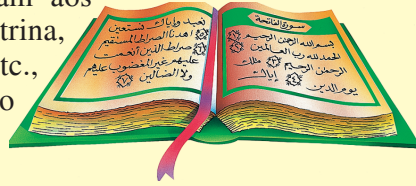 am aos
trina,
tc.,
o
سورة الفاتحة
بسم الله الرحمن الرحيم
الحمد لله رب العالمين
الرحمن الرحيم مالك
يوم الدين إياك
نعبد وإياك نستعين
اهدنا الصراط المستقيم
صراط الذين أنعمت
عليهم غير المغضوب عليهم
ولا الضالين